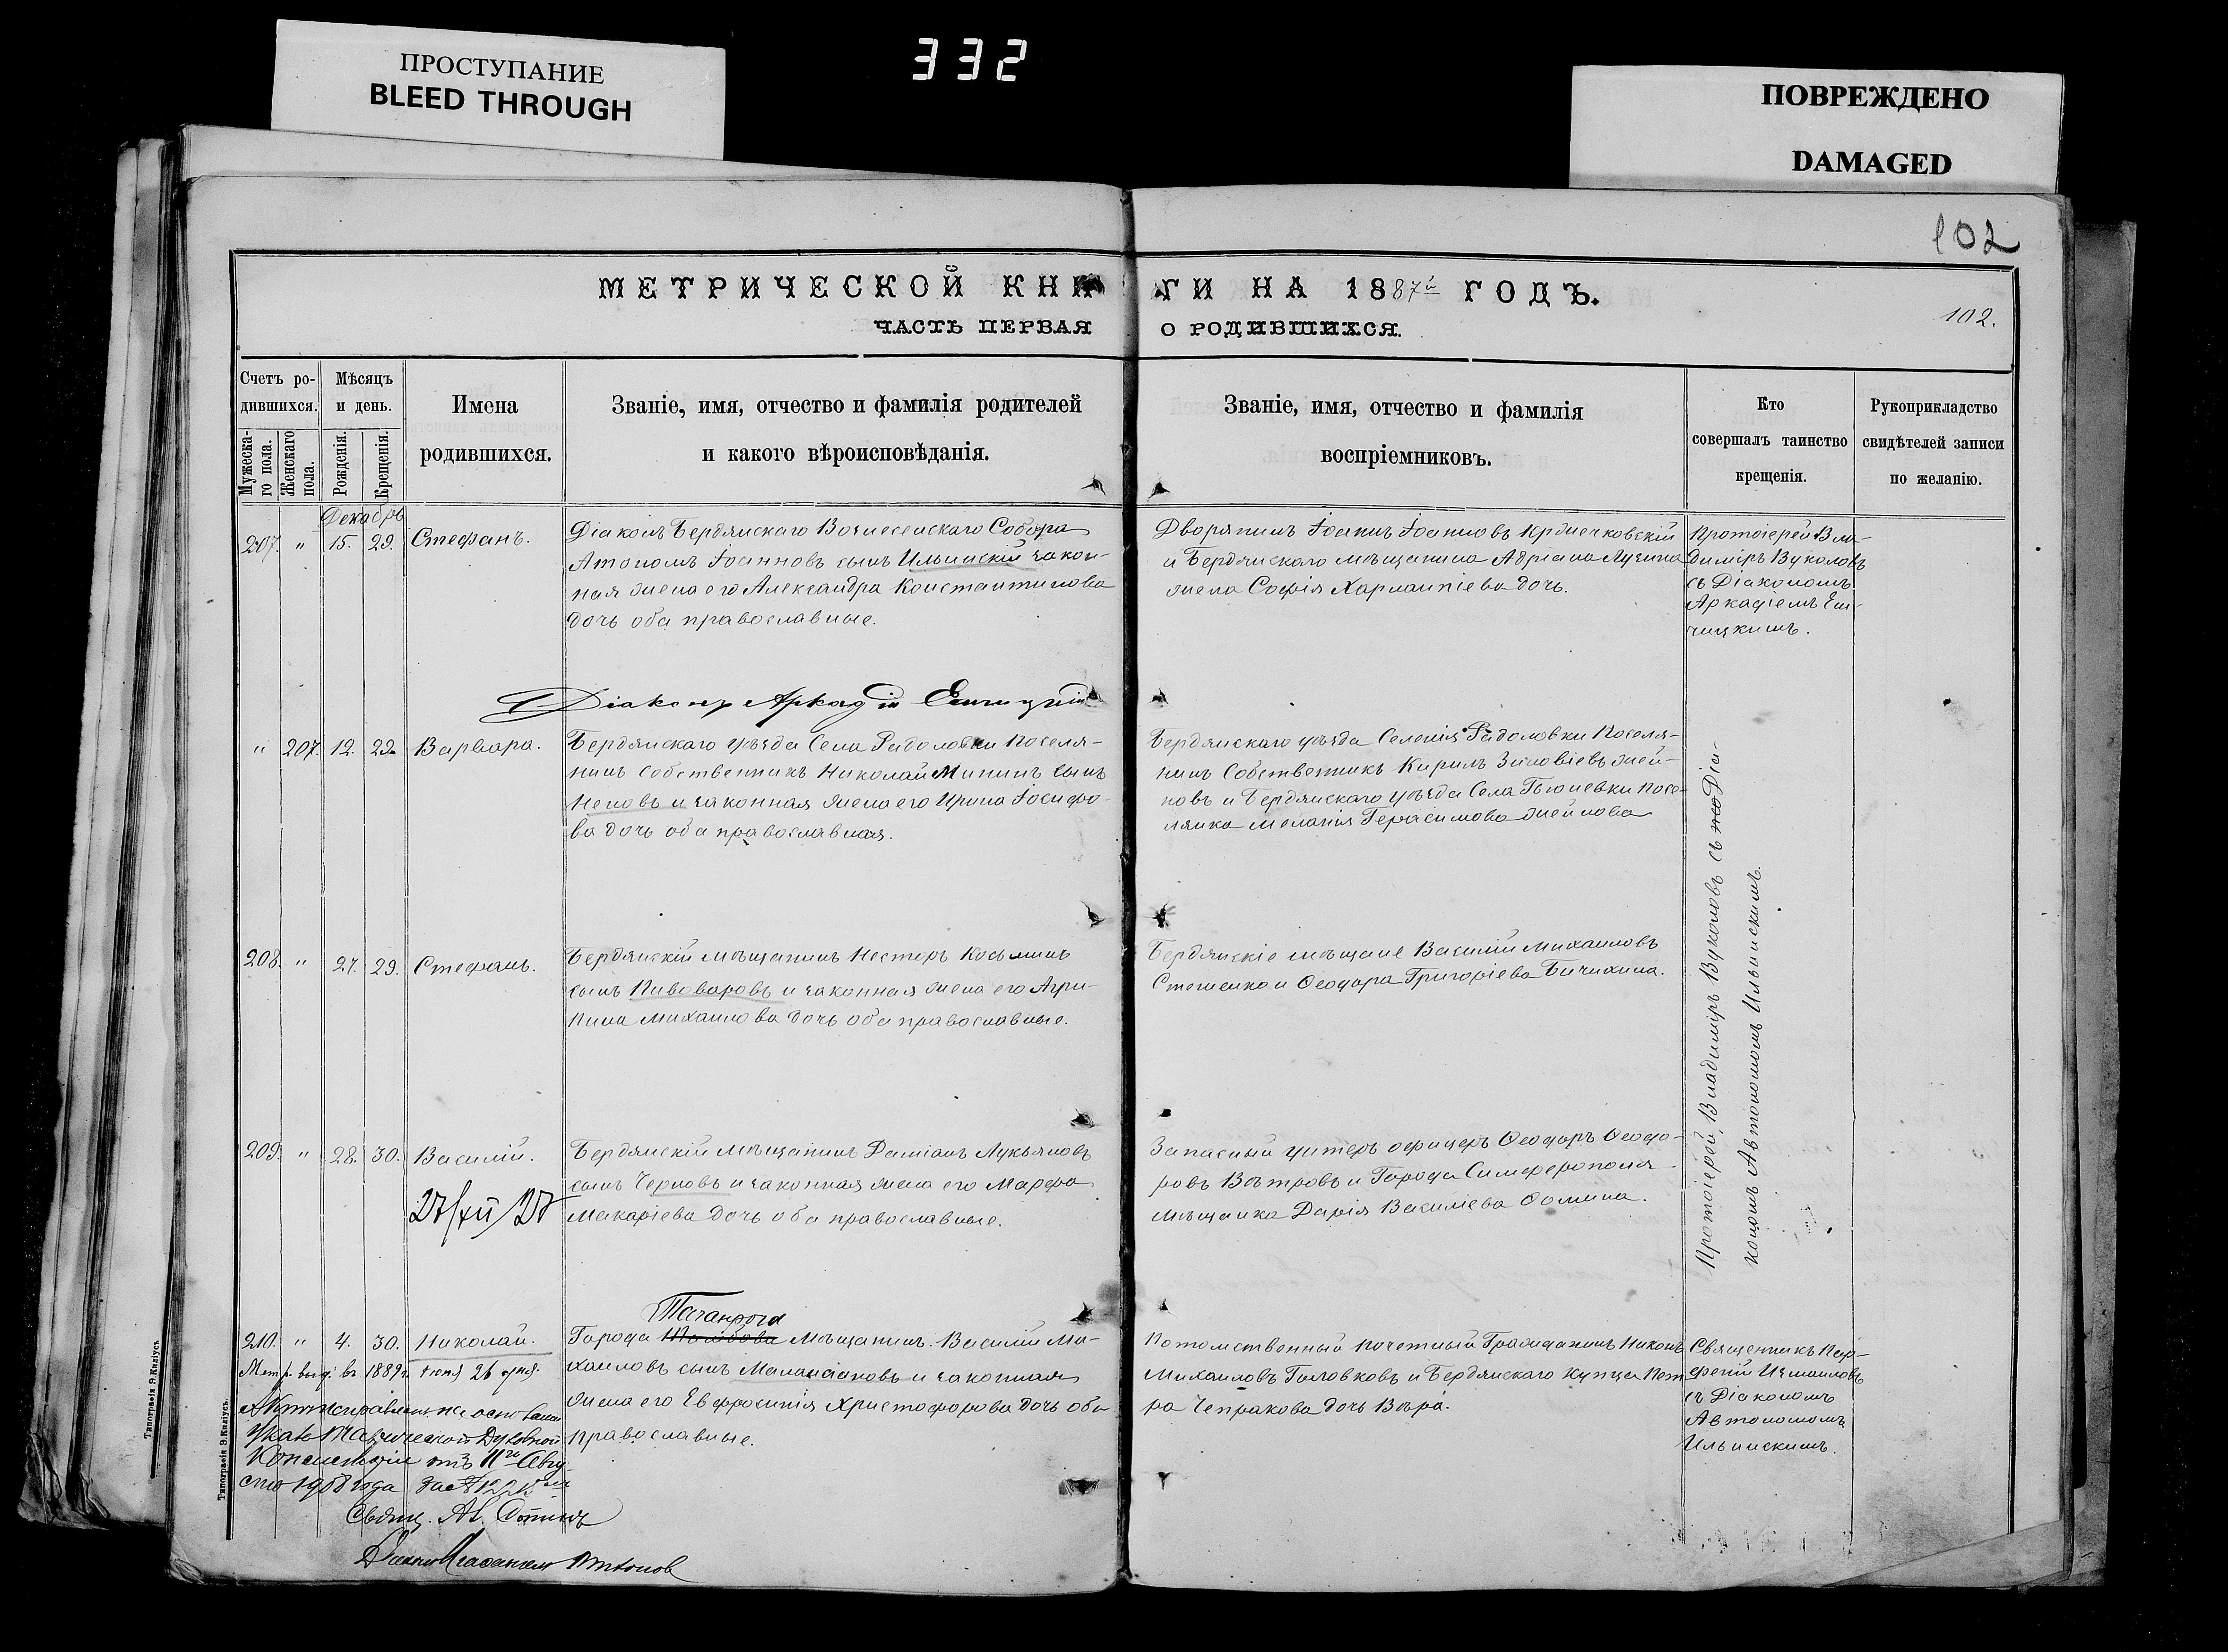 ПРОСТУПАНИЕ
BLEED THROUGH
332
ПОВРЕЖДЕНО
DAMAGED
102
МЕТРИЧЕСКОЙ КНИГИ НА 1887й ГОДЪ.
ЧАСТЬ ПЕРВАЯ О РОДИВШИХСЯ.
102.
Счетъ ро-
дившихся.
Мужеска-
го пола.
Женскаго
пола.
Мѣсяцъ
и день.
Рожденія.
Крещенія.
Имена
родившихся.
Званіе, имя, отчество и фамилія родителей
и какого вѣроисповѣданія.
Званіе, имя, отчество и фамилія
воспріемниковъ.
Кто
совершалъ таинство
крещенія.
Рукоприкладство
свидѣтелей записи
по желанію.
Декабрь
207. " 15. 29. Стефанъ.
Діаконъ Бердянскаго Вознесенскаго Собора
Автономъ Іоанновъ сынъ Ильинскій закон-
ная жена его Александра Константинова
дочь оба православные.
Дворянинъ Іоаннъ Іоанновъ
и Бердянскаго мѣщанина Адріана Лучина
жена Софія Харлампіева дочь.
Протоіерей Вла-
диміръ Вуколовъ
съ Діакономъ
Аркадіемъ Ен-
чицкимъ.
Діаконъ Аркадій
" 207. 12. 29. Варвара.
Бердянскаго уѣзда Села Радоловки Поселя-
нинъ Собственникъ Николай Мининъ сынъ
Неновъ и законная жена его Ирина Іосифо-
ва дочь оба православная.
Бердянскаго уѣзда Селенія Радоловки Поселя-
нинъ Собственникъ Кирилъ Зиновіевъ Жей-
новъ и Бердянскаго уѣзда Села Гюневки Посе-
лянка Меланія Герасимова Жейнова
208. " 27. 29. Стефанъ.
Бердянскій мѣщанинъ Нестеръ Косьминъ
сынъ Пивоваровъ и законная жена его Агри-
пина Михаилова дочь оба православные.
Бердянскіе мѣщане Василій Михаиловъ
Стешенко и Ѳеодора Григоріева Бичихина.
209. " 28. 30. Василій.
27/XII/27
Бердянскій мѣщанинъ Даміанъ Лукьяновъ
сынъ Черновъ и законная жена его Марфа
Макаріева дочь оба православные.
Запасный унтеръ офицеръ Ѳеодоръ Ѳеодо-
ровъ Вѣтровъ и Города Симферополя
мѣщанка Дарія Василіева Ѳомина.
Протоіерей Владиміръ Вуколовъ съ Діа-
кономъ Автономомъ Ильинскимъ.
210. " 4. 30. Николай.
Таганрога
Города мѣщанинъ Василій Ми-
хаиловъ сынъ и законная
жена его Евфросинія Христофорова дочь оба
православные.
Потомственный почетный Гражданинъ Никонъ
Михаиловъ Головковъ и Бердянскаго купца Пет-
ра Чепракова дочь Вѣра.
Священникъ Пар-
феній Измаиловъ
съ Діакономъ
Автономомъ
Ильинскимъ.
Метр. выд. въ 1889 г. іюня 26 дня.
Актъ исправленъ на основаніи
Указа Таврической Духовной
Консисторіи отъ 11го Авгу-
ста 1908 года за №
Свящ. Ал.
Типографія Э. Киліусъ.
Типографія Э. Киліусъ.